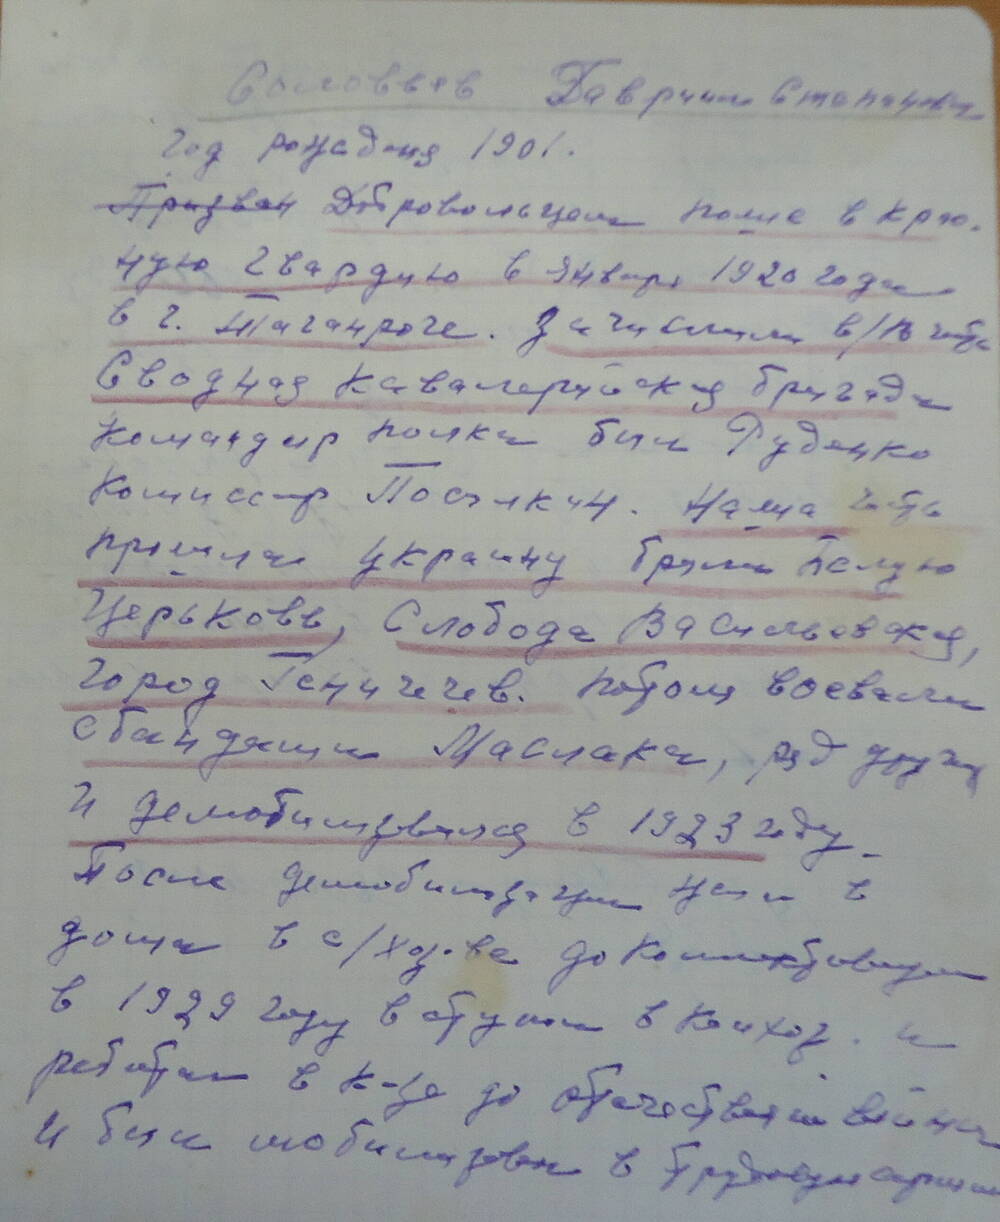 Соловьев Гавриил Степанович
Год рождения 1901.
Призван Добровольцем пошел в крас.
ную гвардию в январе 1920 года
в г. Таганроге. Зачислили в часть
Сводная кавалерийская бригада
командир полка был Руденко
комиссар Посилкин. Наша часть
прошла Украину брали Белую
Церьковь, Слобода Васильевская,
город Геничечев. потом воевали
с бандами Маслака, ряд других
и демобилизовался в 1923 году.
После демобилизации жил в
дома в с/хоз-ве до Коллективизации
в 1929 году вступил в колхоз. и
работал в к-зе до отечественной войны
и был мобилизован в трудовую армию